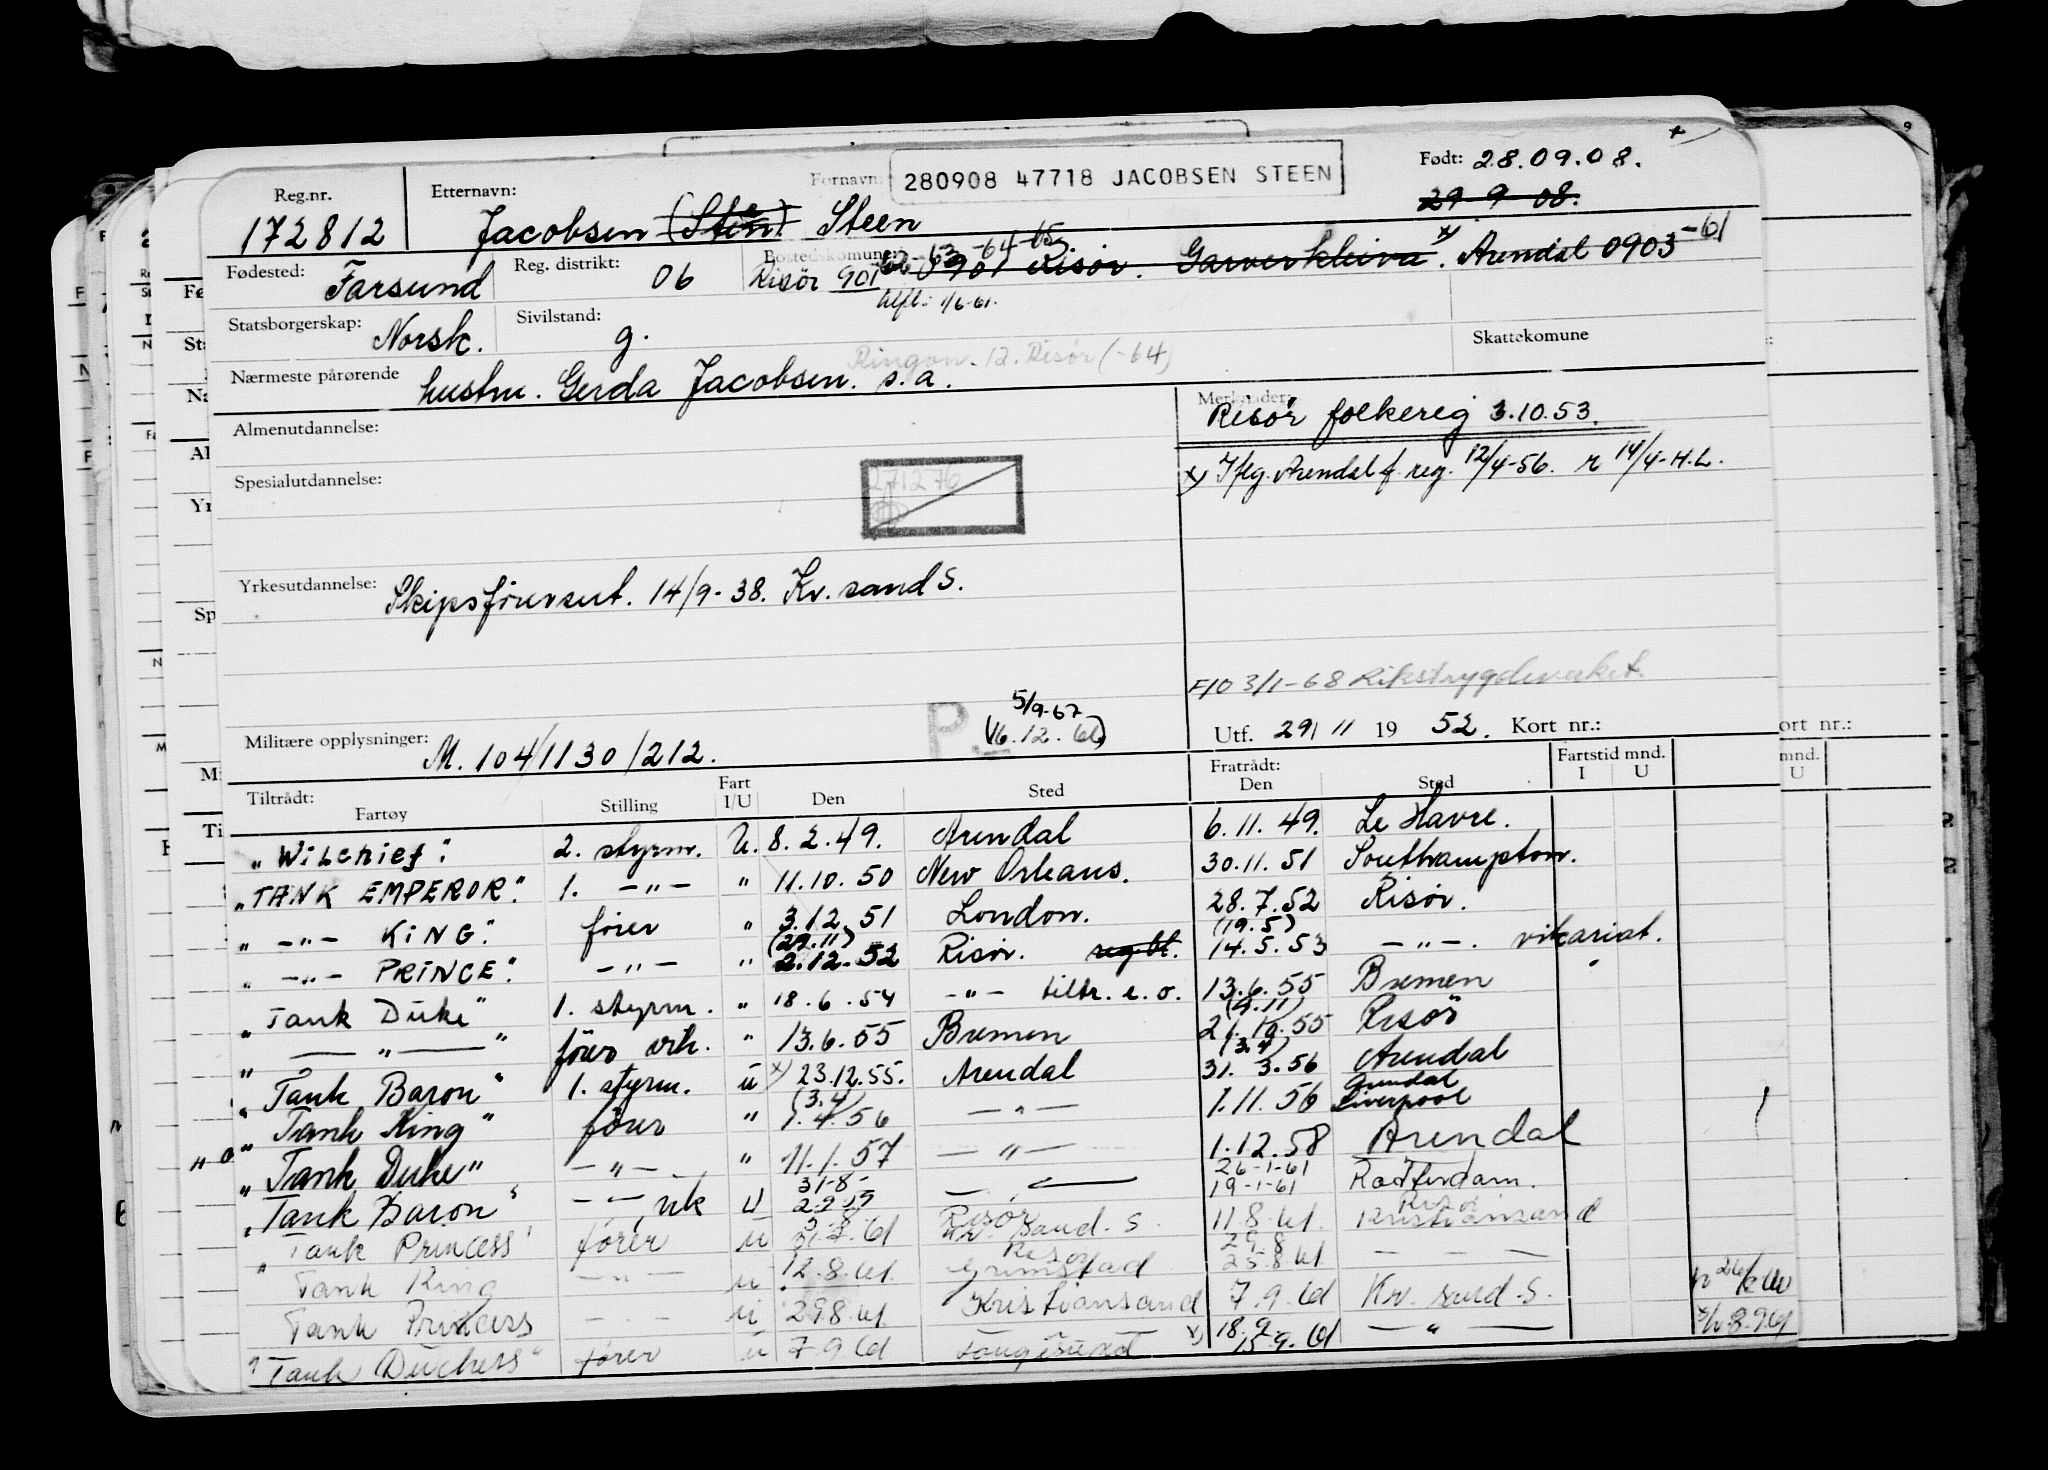 Reg.nr. Etternavn: Fornavn: 280908 47718 JACOBSEN STEEN Født: 28.09.08.
29 9 08.
172812 Jacobsen (Sten) Steen
Fødested: Farsund Reg. distrikt: 06 Bostedskomune: Risør 901 62-63-64-65 0901 Risør. Garverkleiva. x) Arendal 0903 -61
1/6-61.
Statsborgerskap: Norsk. Sivilstand: g. Skattekomune
Ringvn. 12. Risør (-64)
Nærmeste pårørende hustru. Gerda Jacobsen. s.a.
Merknader: Risør folkereg 3.10.53.
Almenutdannelse:
x) Iflg. Arendal f. reg. 12/4-56. r 14/4-H.L.
Spesialutdannelse: 271276
Yrkesutdannelse: Skipsførersert. 14/9-38. Kr.sand S.
F10 3/1-68 Rikstrygdeverket.
P. 5/9-67
(16.12.60)
Militære opplysninger: M. 104/1130/212.
Utf. 29/11 1952. Kort nr.:
Tiltrådt: Fartøy Stilling Fart I/U Den Sted Fratrådt: Den Sted Fartstid mnd. I U
"Wilchief". 2. styrm. U. 8.2.49. Arendal 6.11.49. Le Havre.
"TANK EMPEROR". 1. -"- " 11.10.50 New Orleans. 30.11.51 Southampton.
" -"- KING". fører " 3.12.51 London. 28.7.52 Risør.
(29.11) (19.5)
" -"- PRINCE". -"- " 2.12.52 Risør. reg.bl. 14.5.53 -"-. vikariat.
"Tank Duke" 1. styrm. " 18.6.54 -"- tiltr. e.o. 13.6.55 Bremen
(4.11)
" -"- " fører vik. " 13.6.55 Bremen 21.10.55 Risör
(3.4)
"Tank Baron" 1. styrm. u x) 23.12.55. Arendal 31.3.56 Arendal
(3.4) Arendal
"Tank King" fører " 1.4.56 -"- 1.11.56 Liverpool
"Tank Duke" -"- " 11.1.57 -"- 1.12.58 Arendal
31-8- 26-1-61
"Tank Baron" -"- vik U 2.9.59 -"- 19-1-61 Rotterdam.
Risør Risør
"Tank Princess" fører u 61 Kr.sand.S. 11.8.61. Kristiansand
Risør 29.8
Tank King -"- u 12.8.61. Grimstad 25.8.61 - - -
Tank Princess - - - u 29.8.61. Kristiansand 7.9.61 Kr. sand.S.
18.9.
"Tank Duchess" fører u 7.9.61 Langesund x) 15.9.61 -"- 8.9.61